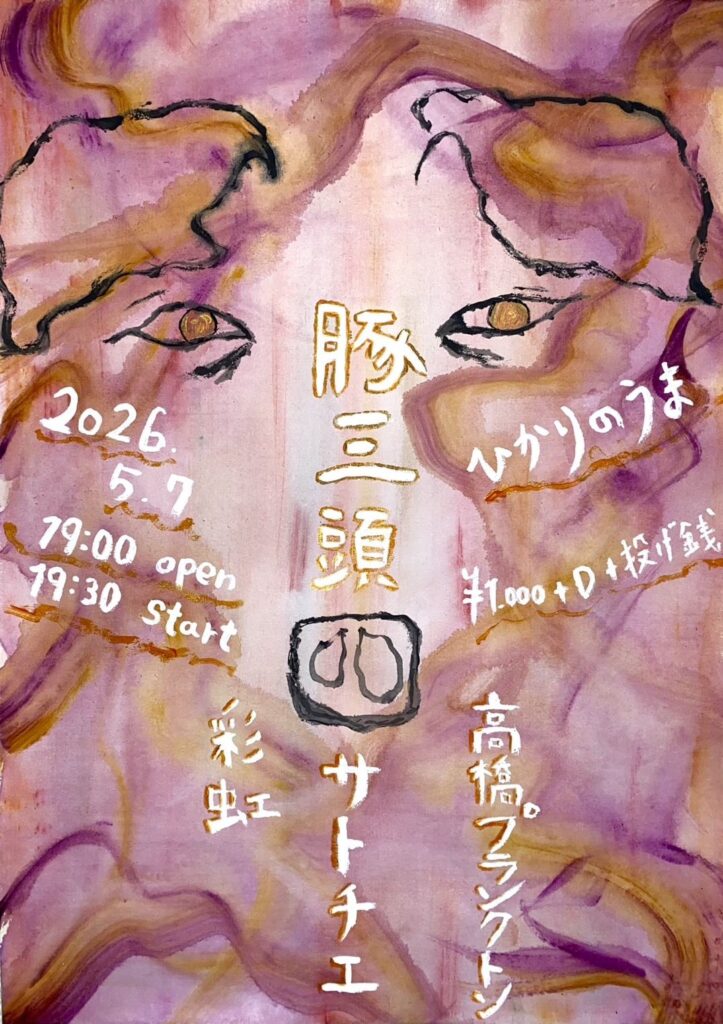 豚三頭
2026.
5.7
19:00 open
19:30 start
ひかりのうま
¥1.000+D+投げ銭
彩虹
サトチエ
高橋プランクトン